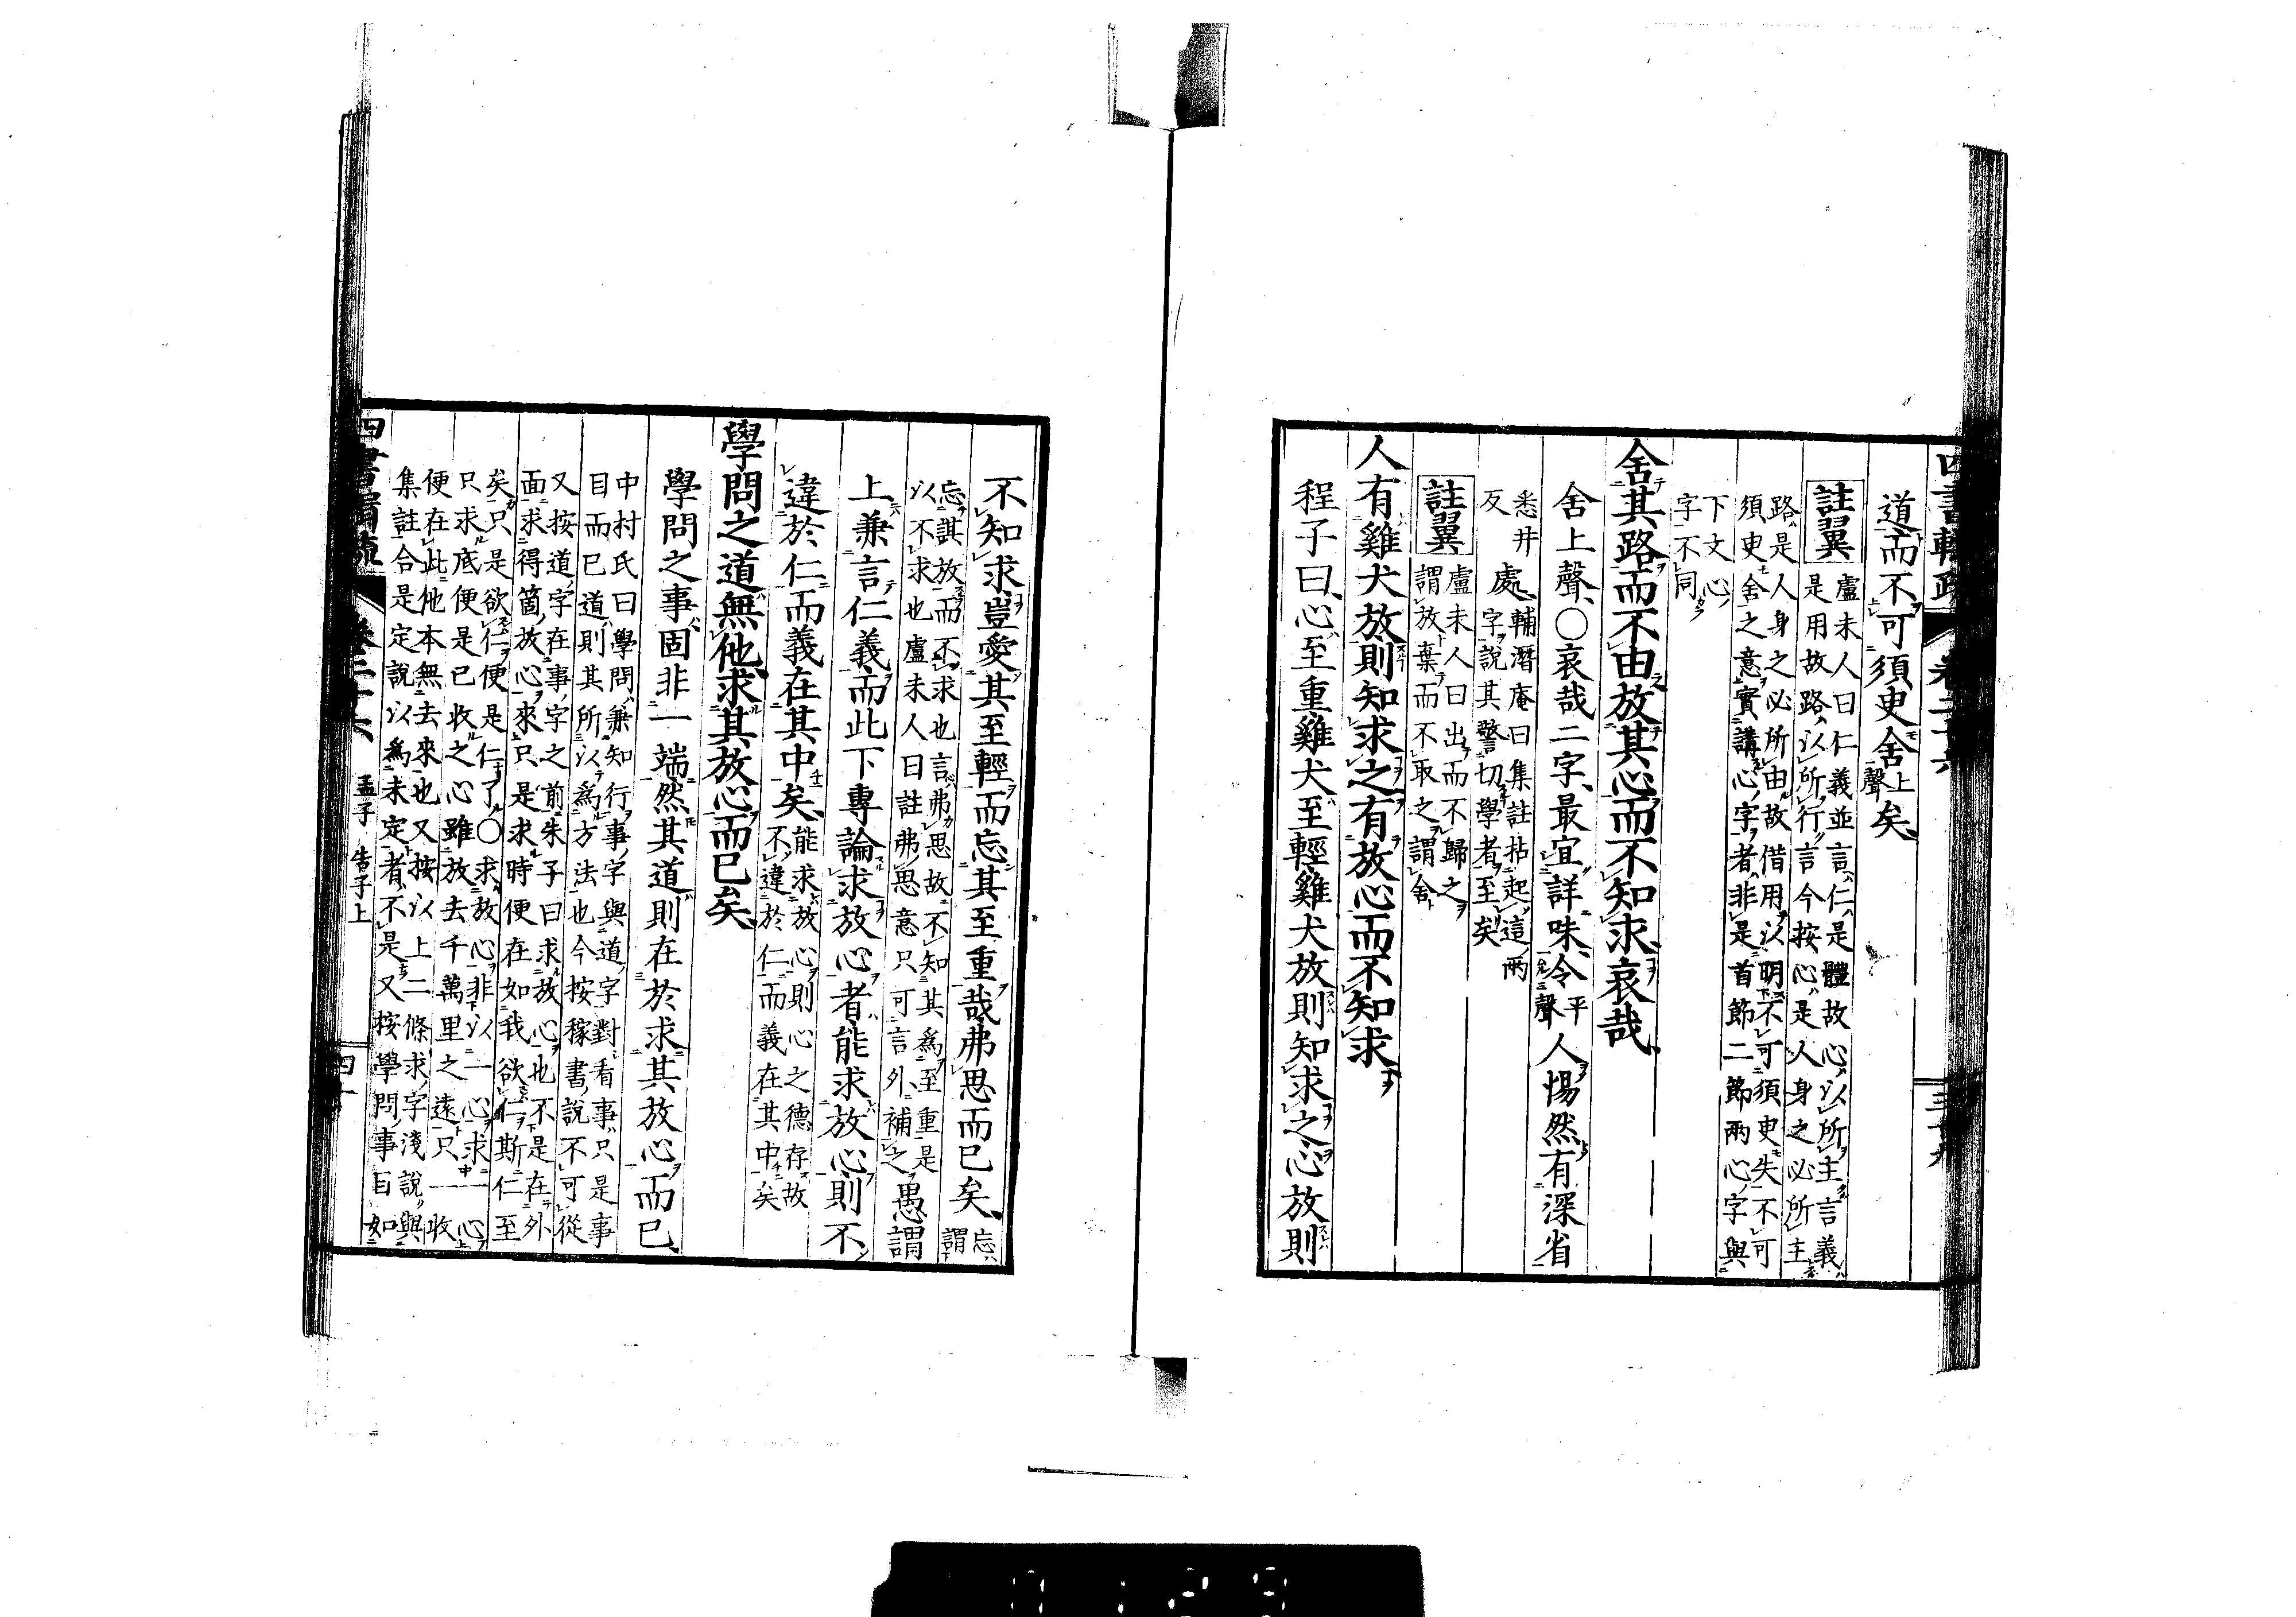 四書輯疏 卷二十六 三十九
道而不可須臾舍上聲矣
註翼 盧未人曰仁義並言仁是體故心以所主言義
是用故路以所行言今按心是人身之必所主
路是人身之必所由故借用以明不可須臾失不可
須臾舍之意實講心字者非是首節二節兩心字與
下文心
字不同
舍其路而不由放其心而不知求哀哉
舍上聲○哀哉二字最宜詳味令平聲人惕然有深省
悉井反 處輔潛庵曰集註拈起這兩
字說其警切學者至矣
註翼 盧未人曰出而不歸之
謂放棄而不取之謂舍
人有雞犬放則知求之有放心而不知求
程子曰心至重雞犬至輕雞犬放則知求之心放則
不知求豈愛其至輕而忘其至重哉弗思而已矣忘謂
忘其放而不求也言弗思故不知其為至重是
以不求也盧未人曰註弗思意只可言外補之愚謂
上兼言仁義而此下專論求放心者能求放心則不
違於仁而義在其中矣能求放心則心之德存故
不違於仁而義在其中矣
學問之道無他求其放心而已矣
學問之事固非一端然其道則在於求其放心而已
中村氏曰學問兼知行事字與道字對看事只是事
目而已道則其所以為方法也今按稼書說不可從
又按道字在事字之前朱子曰求放心也不是在外
面求得箇放心來只是求時便在如我欲仁斯仁至
矣只是欲仁便是仁了○求放心非以一心求一心
只求底便是已收之心雖放去千萬里之遠只一收
便在此他本無去來也又按以上二條求字淺說與
集註合是定說以為未定者不是又按學問事目如
四書輯疏 卷二十六 孟子 告子上 四十